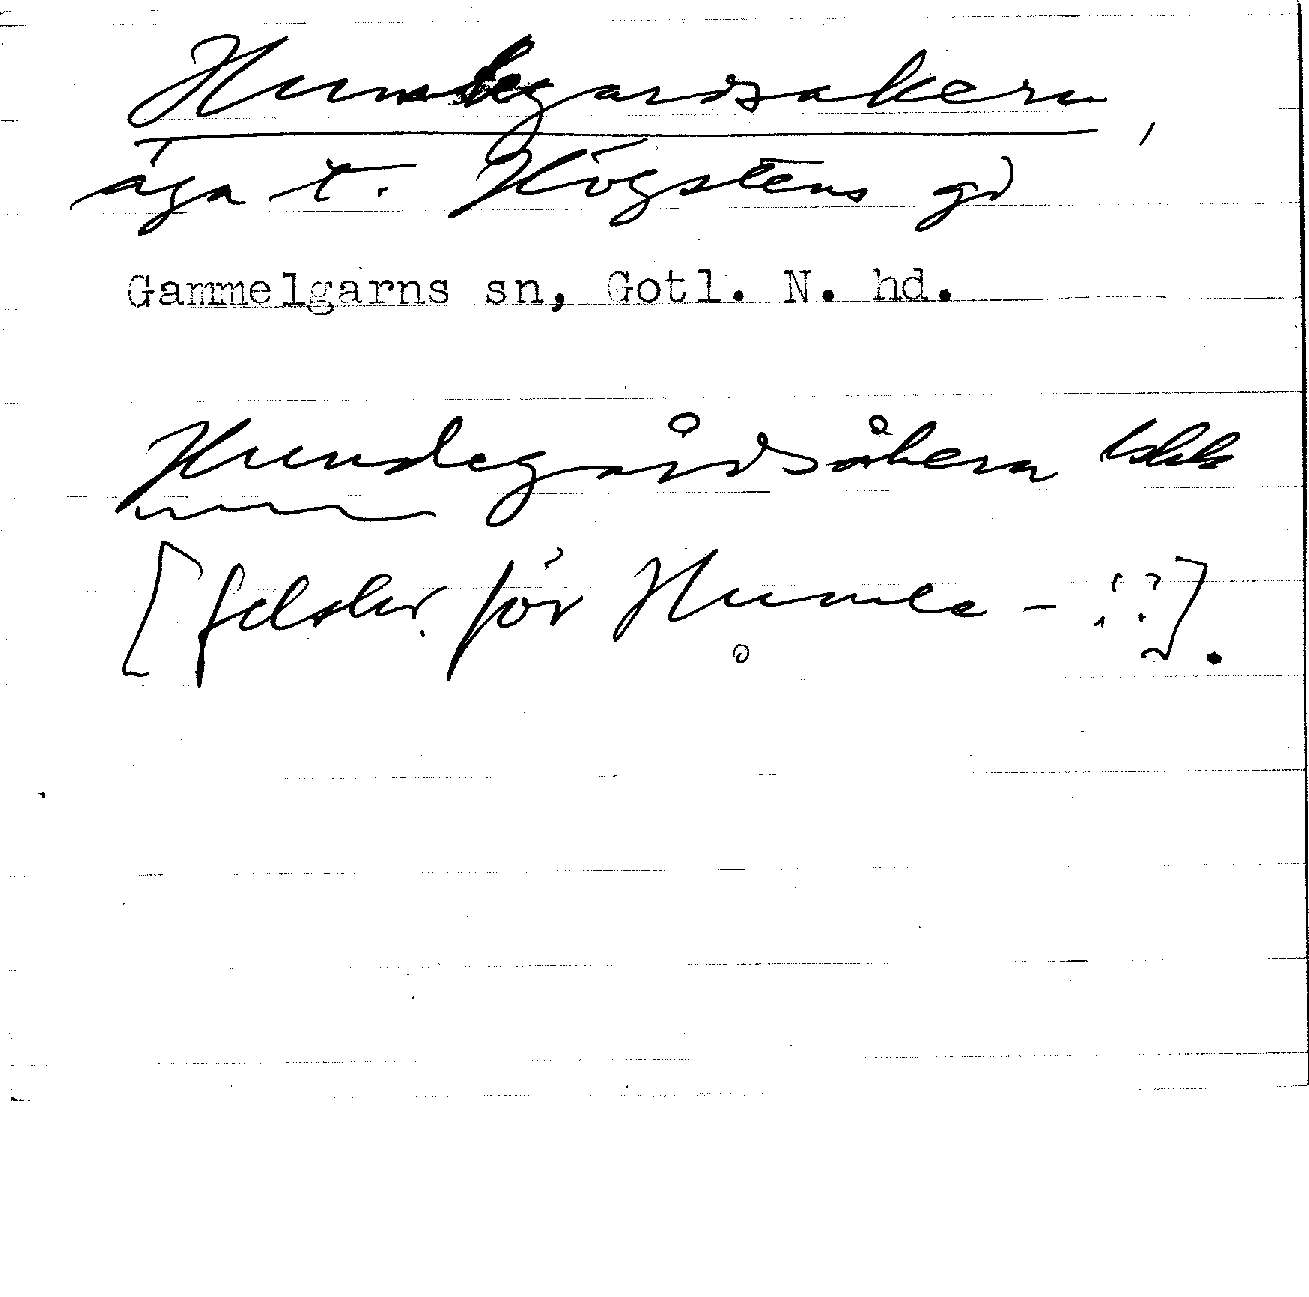 Humlegardsakern,
äga t. Högstens gd
Gammelgarns sn, Gotl. N. hd.
Hundegårdsåkern
[felskr. för Humle- !?].